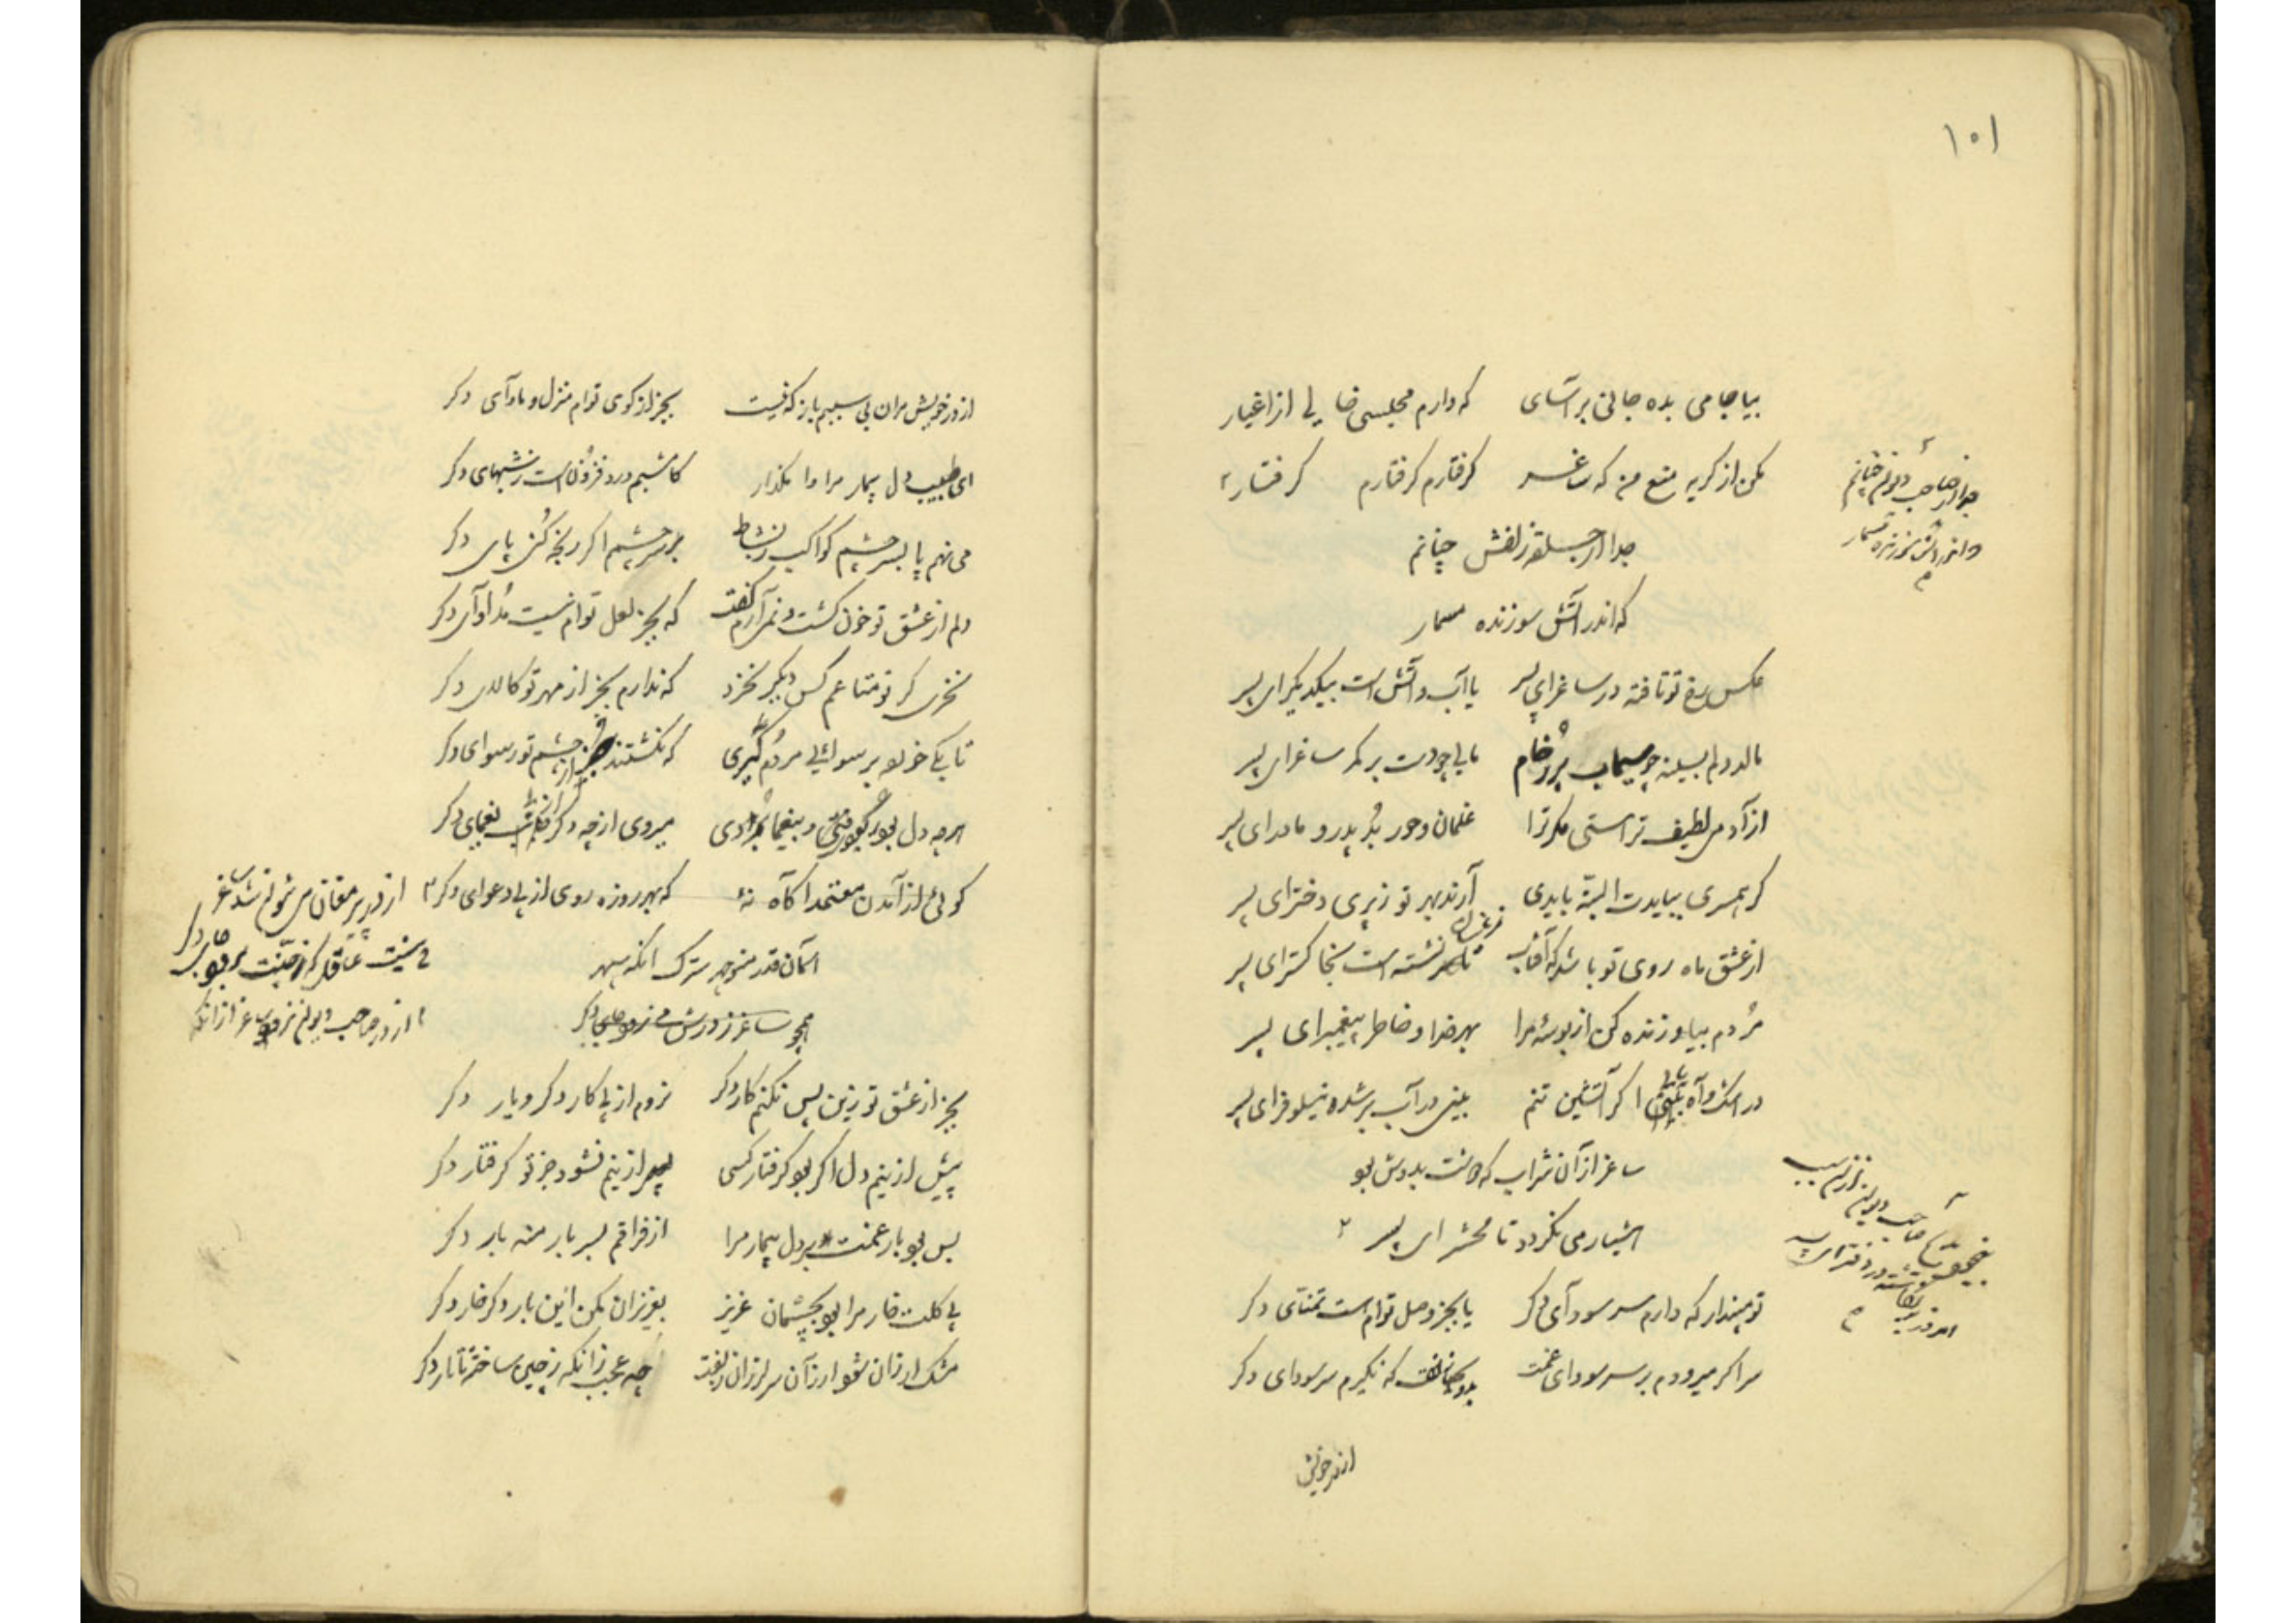 ۱۰۱
بیا جامی بده جانی بر آسای که دارم مجلسی خالی از اغیار
مکن از گریه منع من که ساغر گرفتارم گرفتارم گرفتار
جدا از حلقه زلفش چنانم
که اندر آتش سوزنده مسمار
جدا از صاحب دیوانم چنانم
که اندر آتش سوزنده مسمار
عکس رخ تو تافته در ساغر ای پسر یا آب و آتش است بیکدیگر ای پسر
نالد دلم بسینه چو سیماب پر ز خام
از آدمی لطیف تر استی مگر ترا غلمان و حور بُد پدر و مادر ای پسر
گر همسری ببایدت البته بایدی آرند بهر تو ز پری دختر ای پسر
از عشق ماه روی تو باشد که آفتاب نشسته است بخاکستر ای پسر
مُردم بیا و زنده کن از بوسهٔ مرا بهر خدا و خاطر پیغمبر ای پسر
در اشک و آه بینی اگر آتشین تنم بینی در آب بر شده نیلوفر ای پسر
ساغر از آن شراب که دوشت بدوش بود
هشیار می نگردد تا محشر ای پسر
صاحب دیوان
تو مپندار که دارم سر سودآی دگر یا بجز وصل توام است تمنّای دگر
سر اگر میرودم بر سر سودای غمت که نگیرم سر سودای دگر
از در خویش
از در خویش مران بی سببم باز که نیست بجز از کوی توام منزل و مأوآی دگر
ای طبیب دل بیمار مرا وا مگذار کامشبم درد فزون است ز شبهای دگر
می نهم پا بسر چشم کواکب ز نشاط بر سر چشمم اگر رنجه کُنی پای دگر
دلم از عشق تو خون گشت و نمی آرم گفت که بجز لعل توام نیست مُداوآی دگر
نخری گر تو متاعم کس دیگر نخرد که ندارم بجز از مهر تو کالای دگر
تا بکی خو برسوائی مردم گیری که نگشتند چشم تو رسوای دگر
هر چه دل بود و بیغما بردی میروی از چه دگر بیغمای دگر
گوئی از آمدن معتمد آگاه نهٔ که بهر روزه روی از پی دعوای دگر
آسمان قدر منوچهر سترک آنکه سپهر
همچو ساغر ز درش می نرود جای دگر
از در پیر مغان می نتوانم شد ساغر
نیست عاقل که ز جنّت برود جای دگر
از در صاحب دیوان نرود ساغر از آنکه
بجز از عشق تو زین پس نکنم کار دگر نروم از پی کار دگر و یار دگر
پیش ازینم دل اگر بود گرفتار کسی پس ازینم نشود جز تو گرفتار دگر
بس بود بار غمت بر دل بیمار مرا از فراقم بسر بار منه بار دگر
بی گلت خار مرا بود بچشمان عزیز بعزیزان مکن این بار دگر خار دگر
مشک ارزان شود ار زآن سر لرزان زلفت چه عجب زانکه ز چین ساخته تاتار دگر